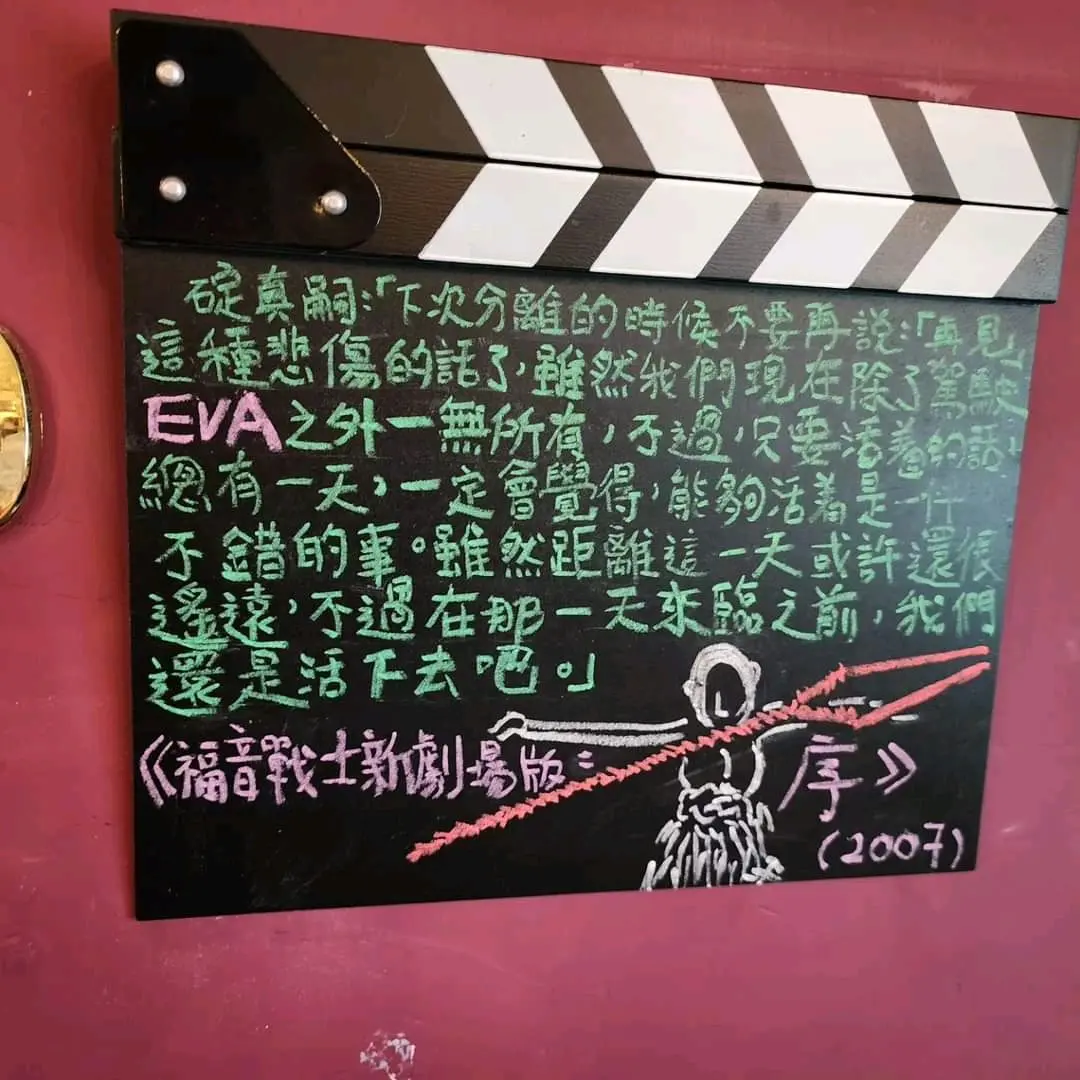 碇真嗣:「下次分離的時候不要再説:「再見」
這種悲傷的話了,雖然我們現在除了駕駛
EVA之外一無所有,不過,只要活着的話,
總有一天,一定會覺得,能夠活着是一件
不錯的事。雖然距離這一天或許還很
遙遠,不過在那一天來臨之前,我們
還是活下去吧。」
《福音戰士新劇場版:序》
(2007)